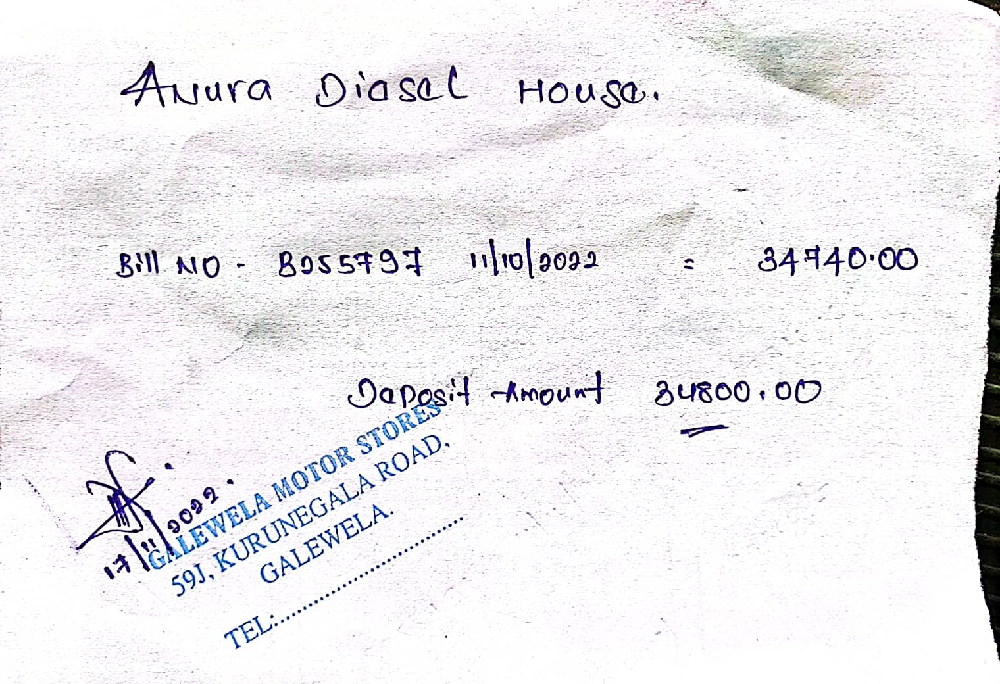 Anura Diesel House.
Bill NO - B255797 11/10/2022 = 34740.00
Deposit Amount 34800.00
17/11/2022.
GALEWELA MOTOR STORES
59J, KURUNEGALA ROAD,
GALEWELA.
TEL:..............................